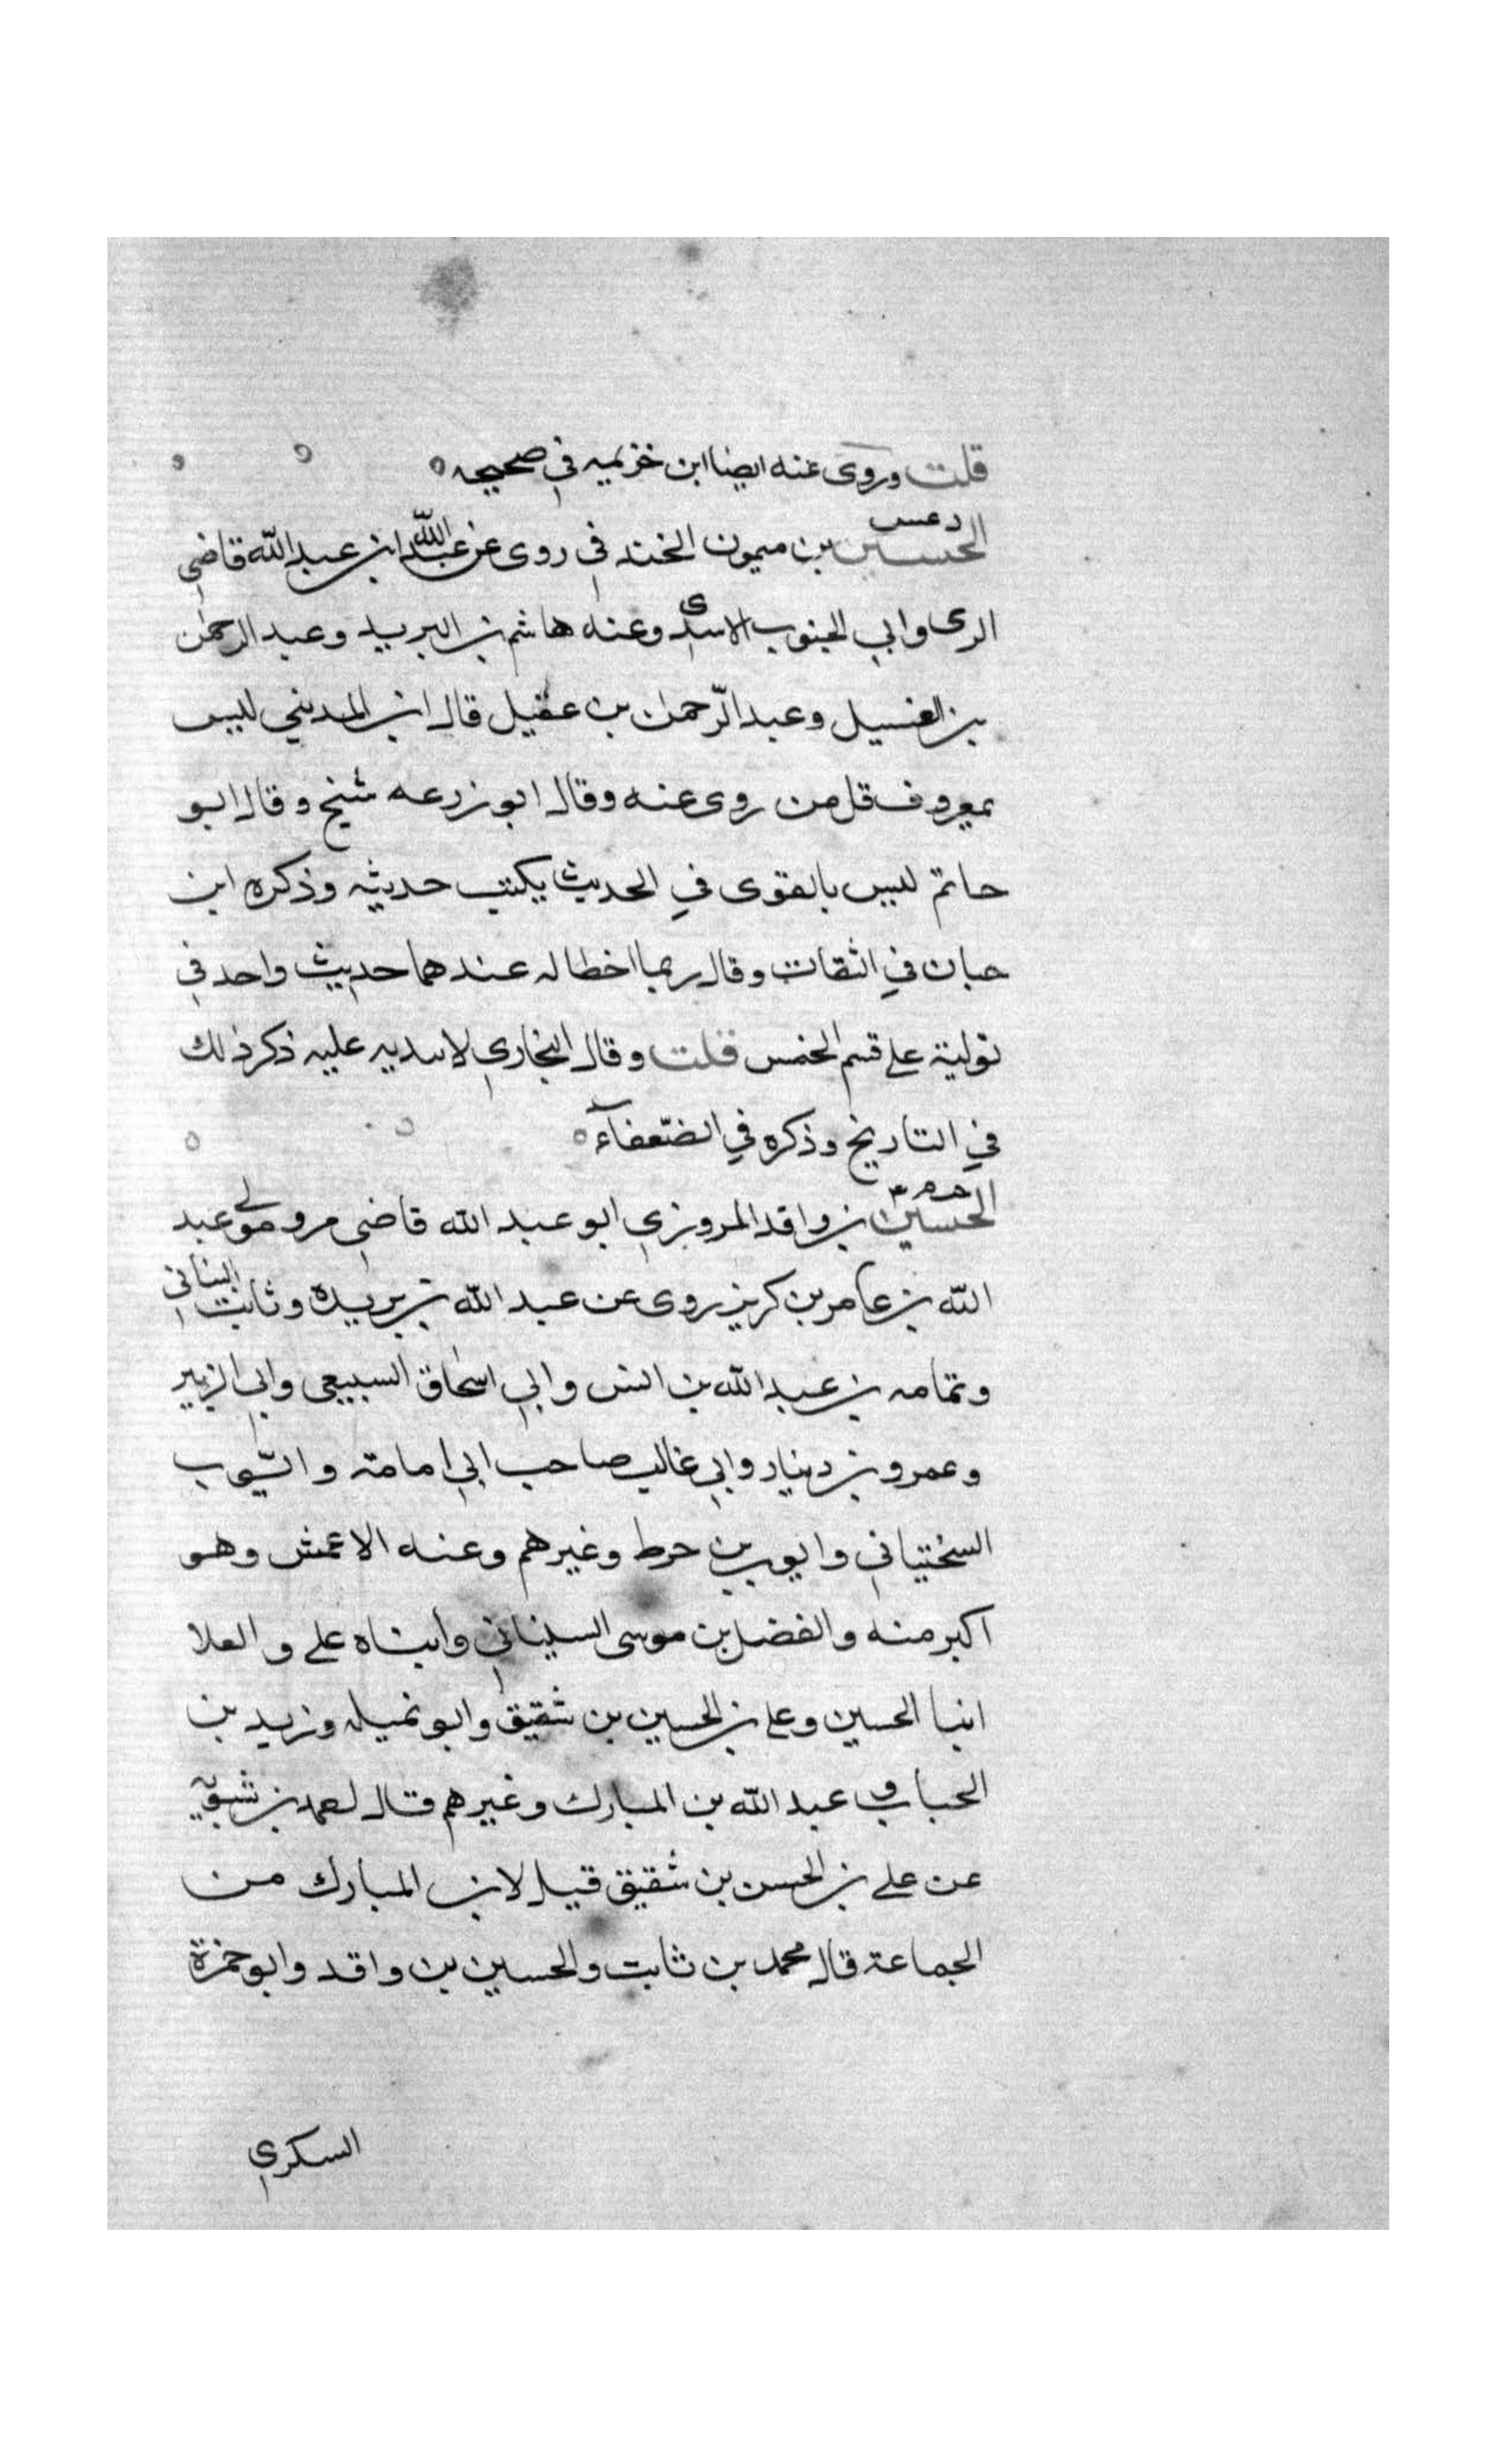 قلت وروى عنه ايضا ابن خزيمه في صحيحه
د عس
الحسين بن ميمون الخندفي روى عن عبد الله ابن عبد الله قاضي
الرى وابي الجنوب الاسدى وعنه هاشم بن البريد وعبد الرحمن
بن الغسيل وعبد الرحمن بن عقيل قال ابن المديني ليس
بمعروف قل من روى عنه وقال ابو زرعه شيخ وقال ابو
حاتم ليس بالقوى في الحديث يكتب حديثه وذكره ابن
حبان في الثقات وقال ربما اخطا له عندهما حديث واحد في
توليته على قسم الخمس قلت وقال البخاري لا سديه عليه ذكر ذلك
في التاريخ وذكره في الضعفآء
الحسين بن واقد المروزي ابو عبد الله قاضي مرو مولى عبد
الله بن عامر بن كريز روى عن عبد الله بن بريدة وثابت البناني
وثمامه بن عبد الله بن انس وابي اسحاق السبيعي وابي الزبير
وعمرو بن دينار وابي غالب صاحب ابي امامة وايّوب
السختياني وايوب بن حوط وغيرهم وعنه الاعمش وهو
اكبر منه والفضل بن موسى السيناني وابناه علي والعلا
ابنا الحسين وعلي بن الحسين بن شقيق وابو تميله وزيد بن
الحباب وعبد الله بن المبارك وغيرهم قال احمد بن شبويه
عن علي بن الحسن بن شقيق قيل لابن المبارك من
الجماعة قال محمد بن ثابت والحسين بن واقد وابو حمزة
السكري